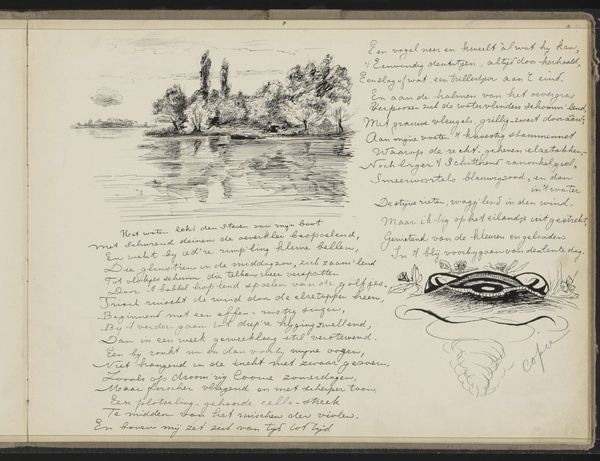 Het water lekt den steven van mijn boot
Met schurend deinen de oeverklei bespoelend,
En welt by ied're rimp'ling kleine bellen,
Die glinstren in de middagzon, zich zaam'lend
Tot vlokjes schuim die telkens weer verspatten
Door 't babbel kaplend spoelen van de golfjes.
Frisch ruischt de wind door de elzetoppen heen,
Beginnend met een effen - rustig zingen,
By 't verder gaan tot diep're hyging zwellend,
Dan in een week geweeklaag stil verstervend.
Een by ronkt nu en dan voorby mijne oogen,
Niet hangend in de lucht met zwaar gezoem,
Zooals op droomrig loome zomerdagen,
Maar forscher vliegend en met scherper toon,
Een plotseling - gehoorde cello - streek
Te midden van het ruischen der violen.
En boven mij zet zich van tyd tot tyd
Een vogel neer en kweelt al wat hy kan,
't Eenvoudig deuntjen, altyd door herhaald,
Een slag of wat, een trillertjen aan 't eind.
En aan de halmen van het oevergras
Verpoozen zich de watervlinders schomm'lend,
Met grauwe vleugels grillig-zwart dooraderd;
Aan mijne voeten 't
Waarop de recht-geheven
Noch lager 't schitterend ranonkelgeel,
Smeerwortels blauwig rood, en dan
in 't water
De styve rieten, wagg'lend in den wind.
Maar ik lig op het eilandje uitgestrekt,
Genietend van de kleuren en geluiden
In 't bly voorbygaan van den lentedag.
copie